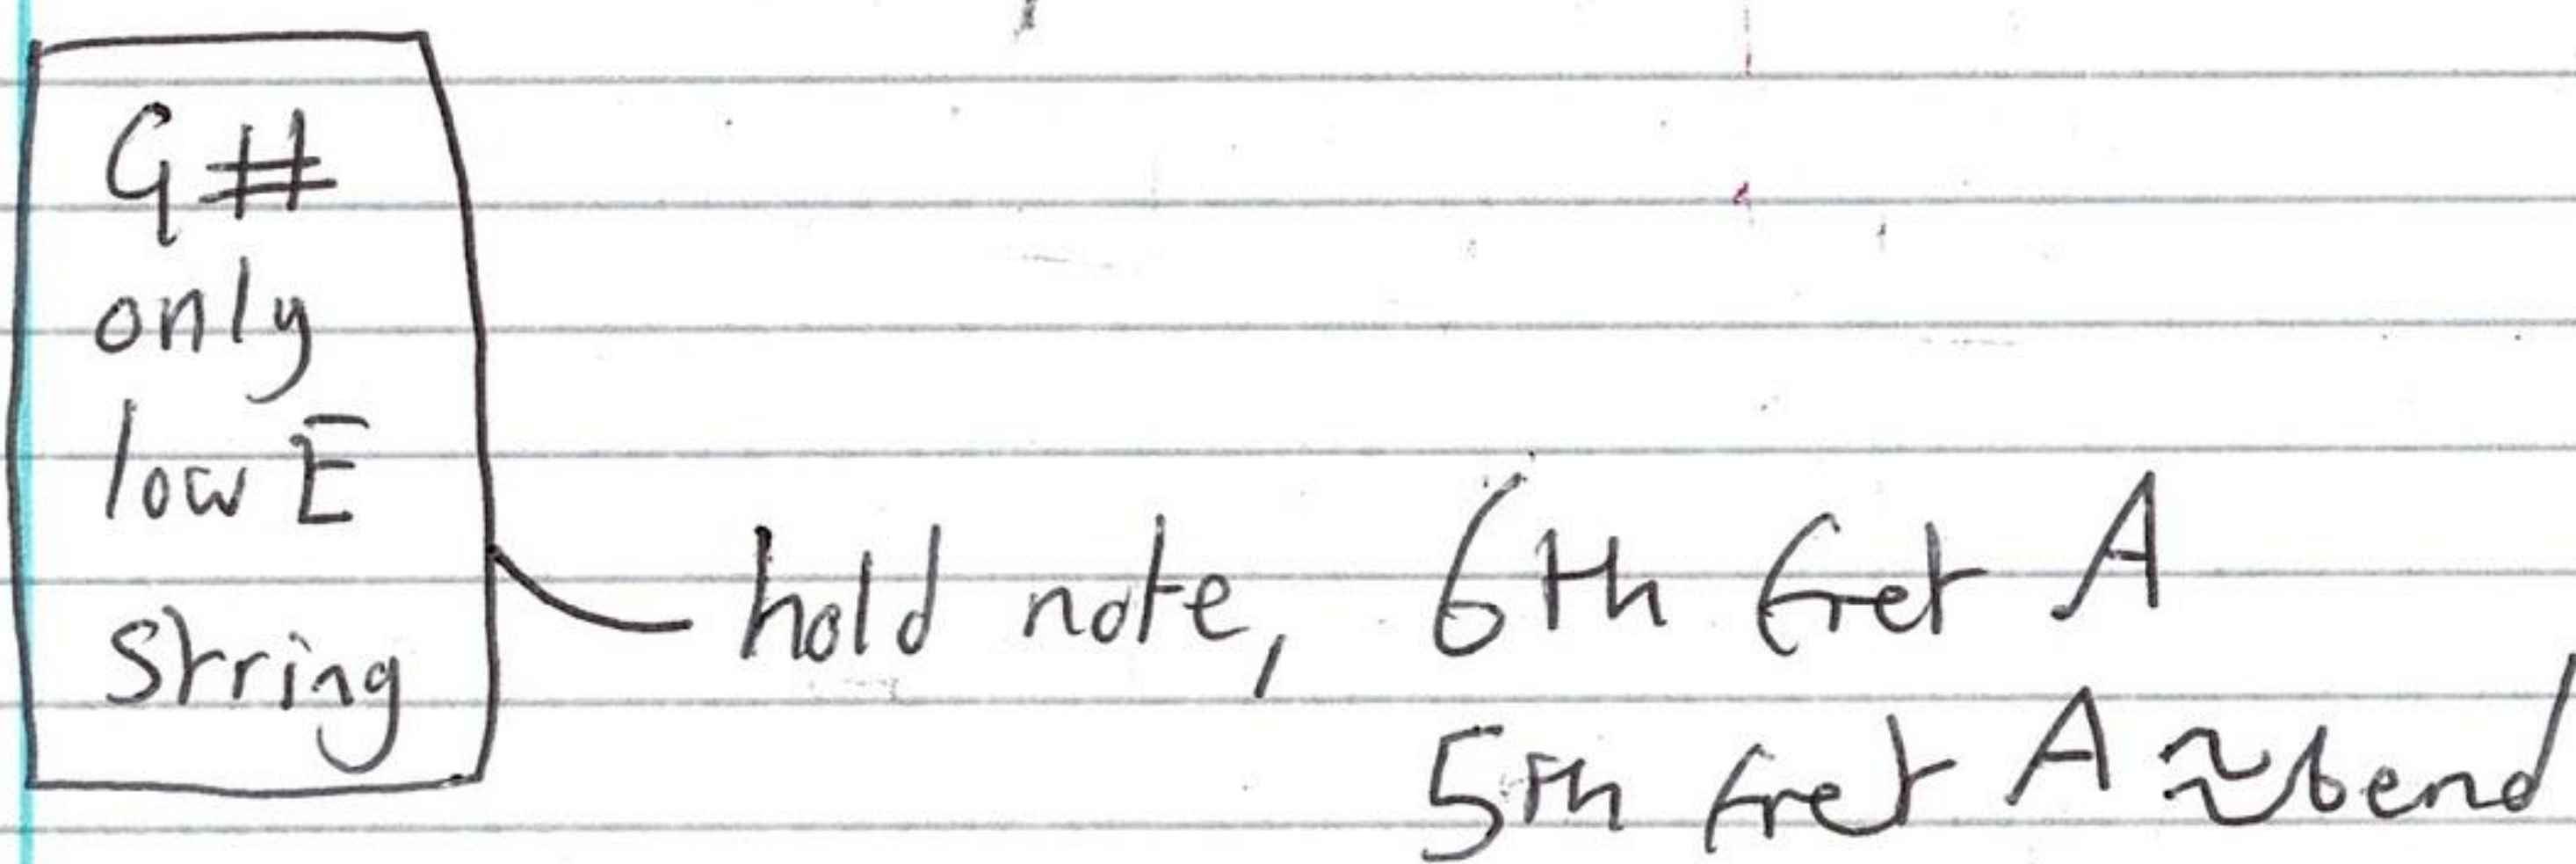 G#
only
low E
string
hold note, 6th fret A
5th fret A ≈ bend